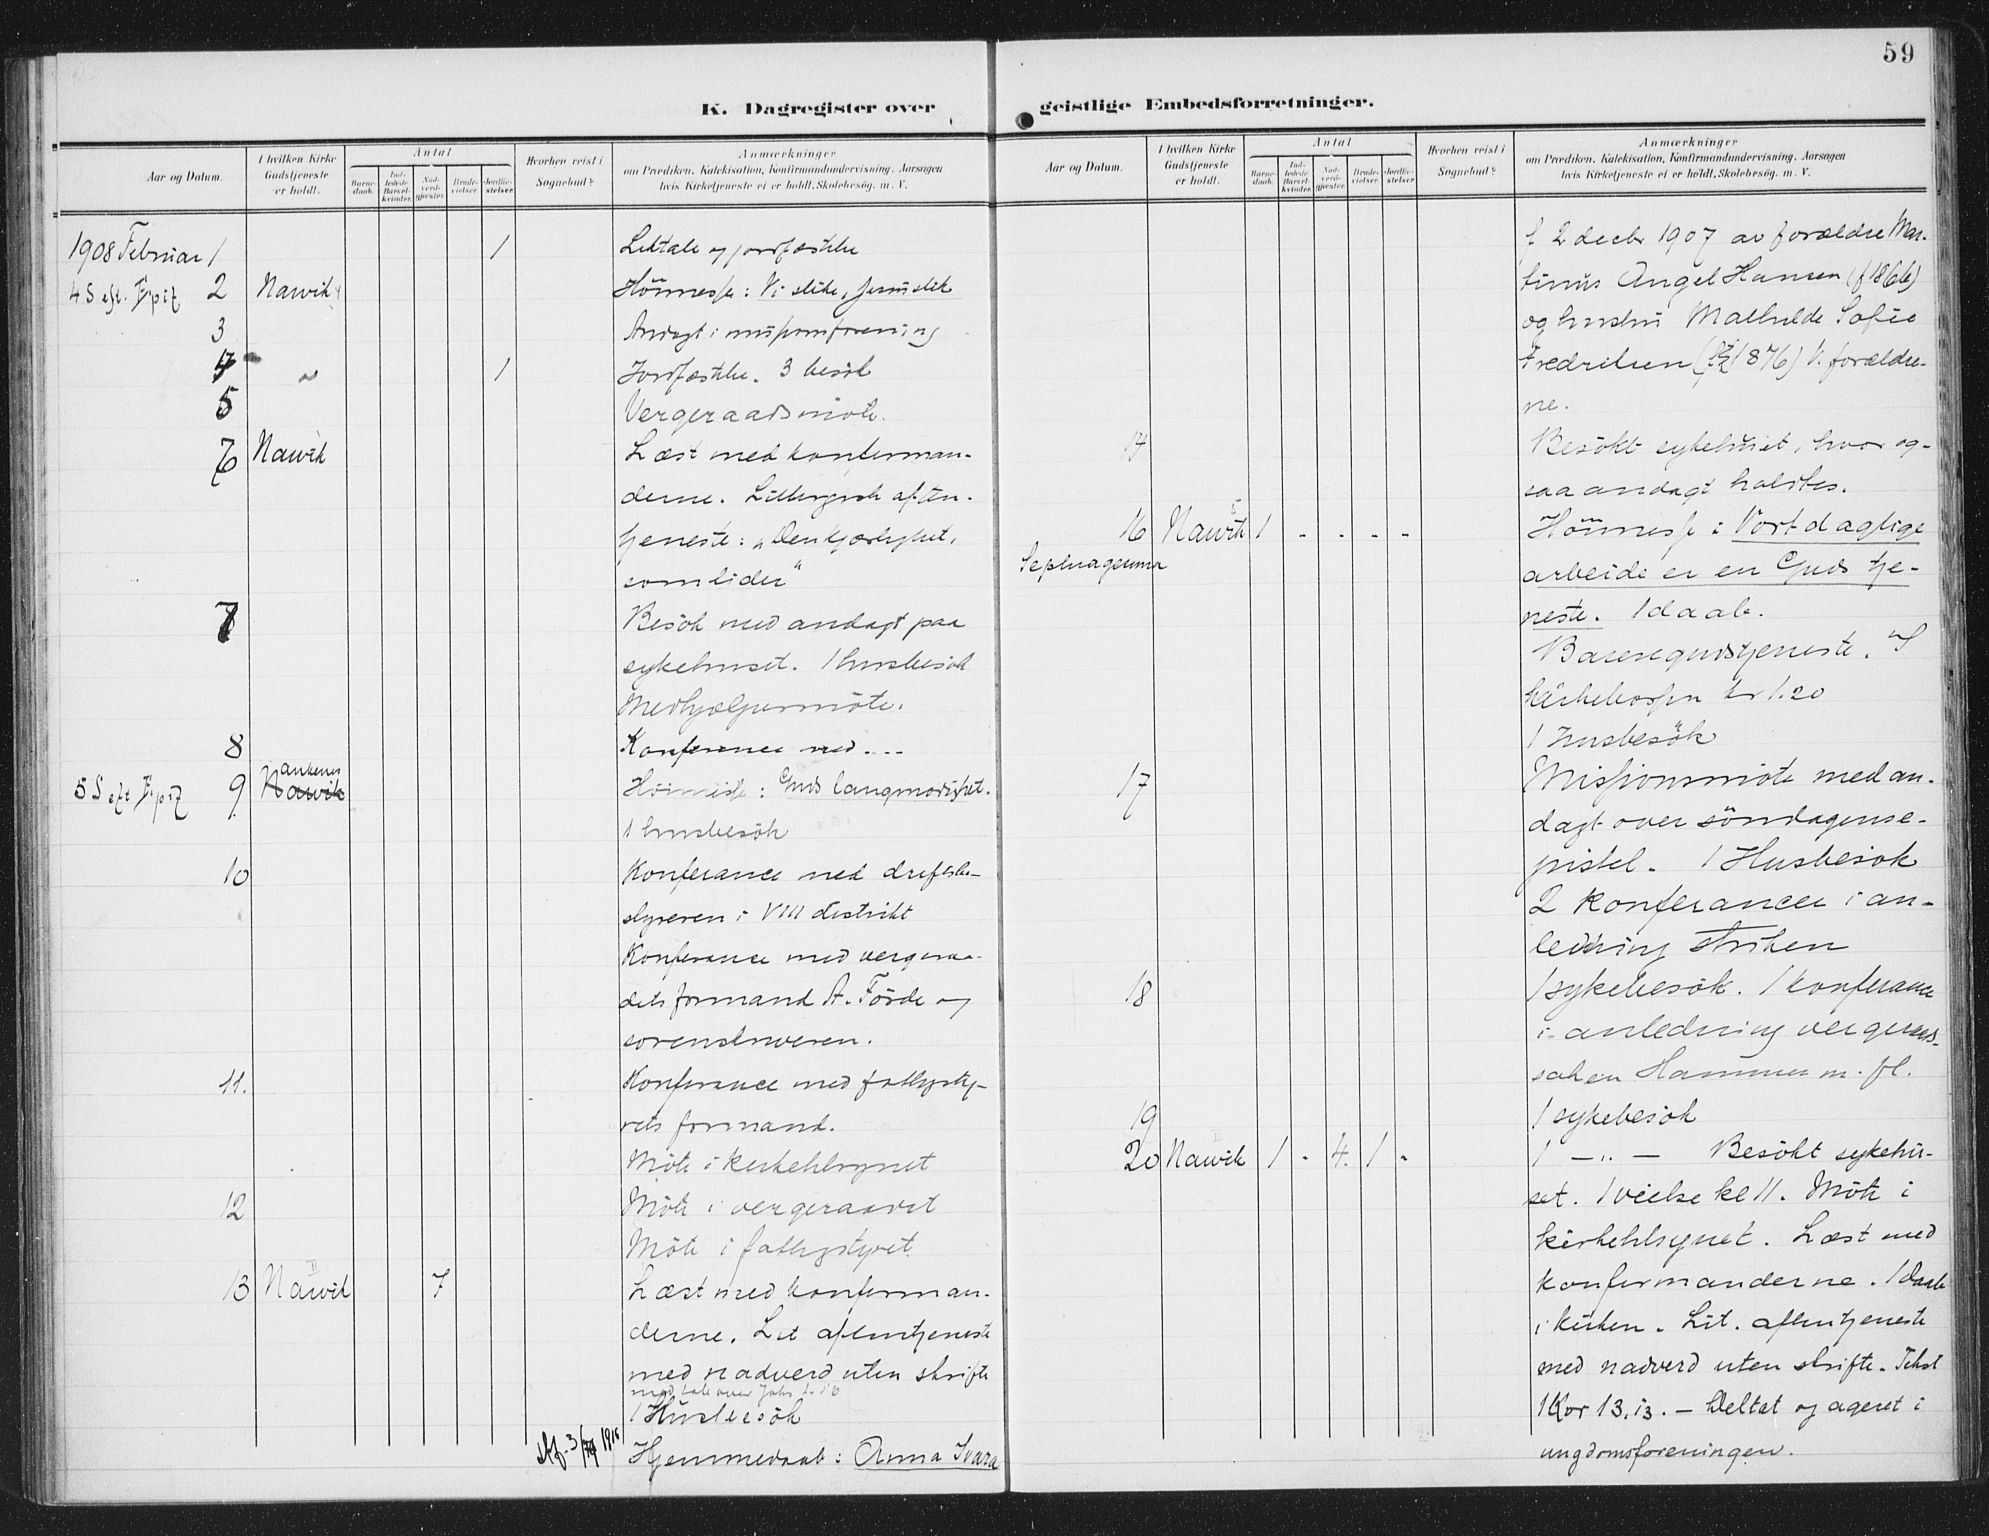 59
K. Dagregister over geistlige Embedsforretninger.
Aar og Datum.
I hvilken Kirke Gudstjeneste er holdt.
Antal
Barne-daab.
Ind-ledede Barsel-kvinder.
Nad-verd-gjæster.
Brude-vielser.
Jordfæ-stelser.
Hvorhen reist i Sognebud?
Anmærkninger
om Prædiken, Katekisation, Konfirmandundervisning, Aarsagen
hvis Kirketjeneste ei er holdt, Skolebesøg. m. V.
1908 Februar 1 1 Liktale og jordfæstelse
4 S eft. Epif 2 Narvik Höimesse:
3 Andagt i
4 " 1 Jordfæstelse. 3 besök
5 Vergeraadsmöte.
6 Narvik Læst med konfirman-
derne. Liturgisk aften-
tjeneste: "Den kjærlighet,
som lider"
7 Besök med andagt paa
sykehuset. 1 husbesök
Medhjælpermöte.
8 Konferance med ...
ankenes
5 S eft Epif 9. Narvik Höimesse: Guds langmodighet.
1 husbesök
10 Konferance med driftsbe-
styreren i VIII distrikt
Konferance med vergeraa-
dets formand A. Förde og
sorenskriveren.
11. Konferance med fattigsty-
rets formand.
Möte i kirketilsynet
12 Möte i vergeraadet
Möte i fattigstyret
II
13 Narvik 7 Læst med konfirman-
derne. Lit aftentjeneste
med nadverd uten skrifte
med tale over Joh
1 Husbesök
1918 Hjemmedaab: Anna Ivara
Aar og Datum.
I hvilken Kirke Gudstjeneste er holdt.
Antal
Barne-daab.
Ind-ledede Barsel-kvinder.
Nad-verd-gjæster.
Brude-vielser.
Jordfæ-stelser.
Hvorhen reist i Sognebud?
Anmærkninger
om Prædiken, Katekisation, Konfirmandundervisning, Aarsagen
hvis Kirketjeneste ei er holdt, Skolebesøg. m. V.
f 2 decbr 1907 av forældre Mar-
tinus Angel Hansen (f 1866)
og hustru Mathilde Sofie
Fredriksen ( 1876) V: forældre-
ne.
14 Besökt sykehuset, hvor og-
saa andagt holdtes.
16 Narvik 1 - - - - Höimesse: Vort daglige
Septuagesima arbeide er en Guds tje-
neste. 1 daab.
Barnegudstjeneste. I
kirkebössen kr 1.20
1 husbesök
17 Missionsmöte med an-
dagt over söndagens e-
pistel. 1 Husbesök
2 konferancer i an-
ledning striken
18 1 sykebesök. 1 konferance
i anledning vergeraads-
saken Hammer m. fl.
19 1 sykebesök
II
20 Narvik 1 - 4. 1 - 1 — " — Besökt sykehu-
set. 1 vielse kl 11. Möte i
kirketilsynet. Læst med
konfirmanderne. 1 daab
i kirken. Lit. aftentjeneste
med nadverd uten skrifte. Tekst
1 Kor 13.13. — Deltat og ageret i
ungdomsforeningen.